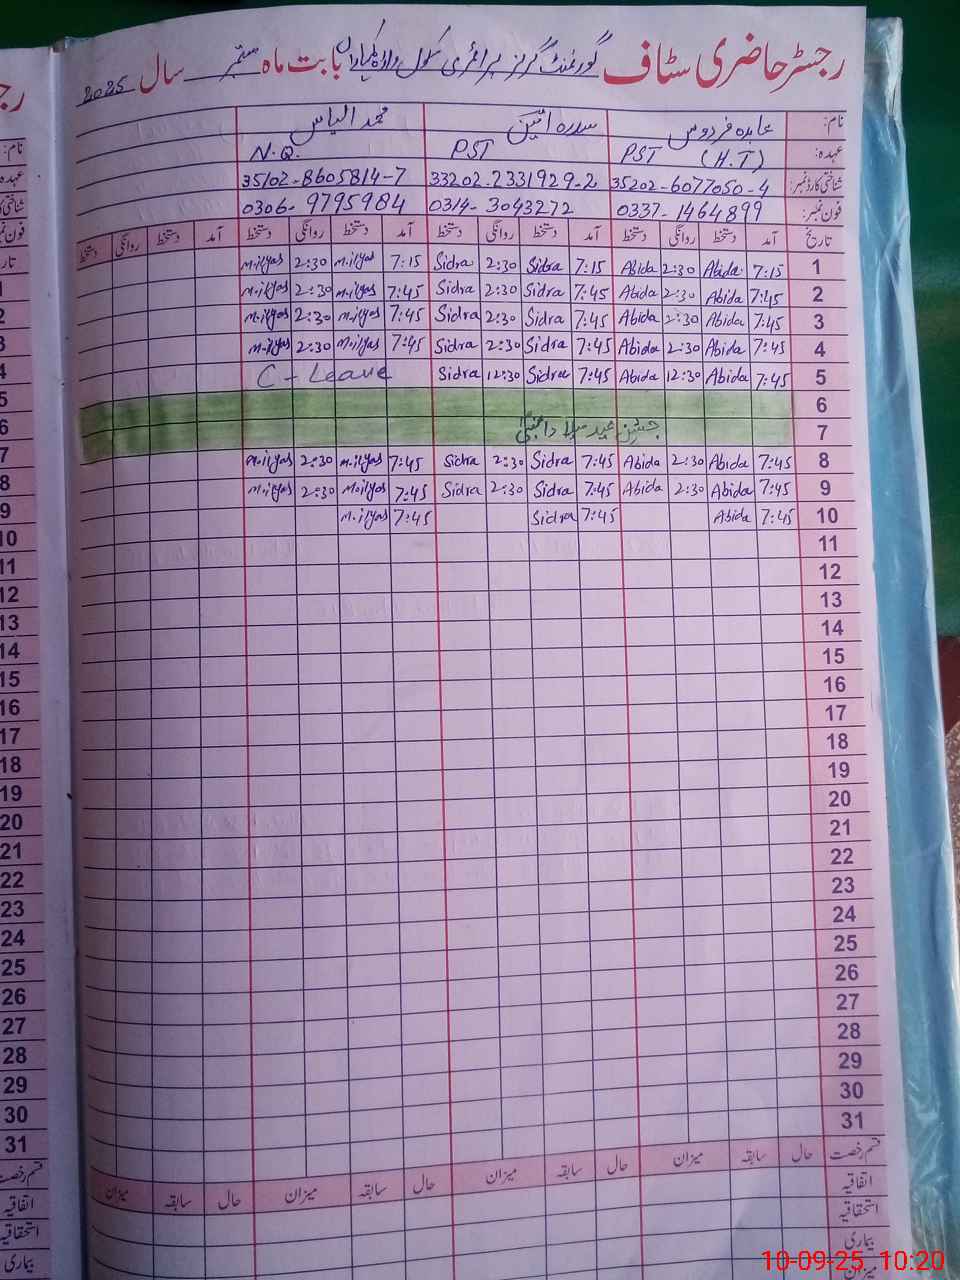 رجسٹر حاضری سٹاف گورنمنٹ گرلز پرائمری سکول بابت ماہ ستمبر سال 2025
نام: عابدہ فردوس سدرہ امین محمد الیاس
عہدہ: PST (H.T) PST N.Q.
شناختی کارڈ نمبر: 35202-6077050-4 33202-2331929-2 35102-8605814-7
فون نمبر: 0337-1464899 0314-3043272 0306-9795984
تاریخ آمد دستخط روانگی دستخط آمد دستخط روانگی دستخط آمد دستخط روانگی دستخط آمد دستخط روانگی دستخط
1 7:15 Abida 2:30 Abida 7:15 Sidra 2:30 Sidra 7:15 M.ilyas 2:30 M.ilyas
2 7:45 Abida 2:30 Abida 7:45 Sidra 2:30 Sidra 7:45 M.ilyas 2:30 M.ilyas
3 7:45 Abida 2:30 Abida 7:45 Sidra 2:30 Sidra 7:45 M.ilyas 2:30 M.ilyas
4 7:45 Abida 2:30 Abida 7:45 Sidra 2:30 Sidra 7:45 M.ilyas 2:30 M.ilyas
5 7:45 Abida 12:30 Abida 7:45 Sidra 12:30 Sidra C - Leave
6
7 جشن عید میلاد النبیؐ
8 7:45 Abida 2:30 Abida 7:45 Sidra 2:30 Sidra 7:45 M.ilyas 2:30 M.ilyas
9 7:45 Abida 2:30 Abida 7:45 Sidra 2:30 Sidra 7:45 M.ilyas 2:30 M.ilyas
10 7:45 Abida 7:45 Sidra 7:45 M.ilyas
11
12
13
14
15
16
17
18
19
20
21
22
23
24
25
26
27
28
29
30
31
قسم رخصت حال سابقہ میزان حال سابقہ میزان حال سابقہ میزان حال سابقہ میزان
اتفاقیہ
استحقاقیہ
بیماری
میزان
10-09-25 10:20